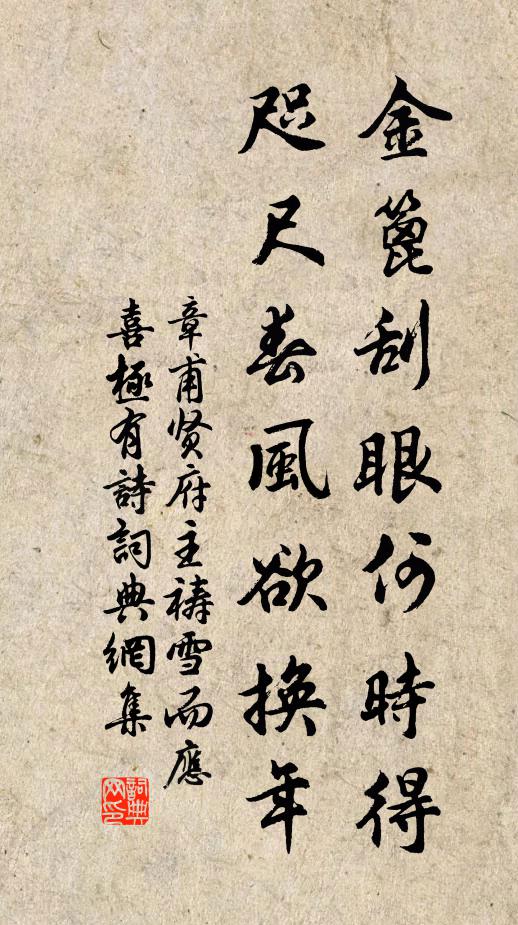 金篦刮眼何時得
咫尺春風欲換年
章甫贤府主禱雪而應
喜極有詩詞典網集
詞典网印